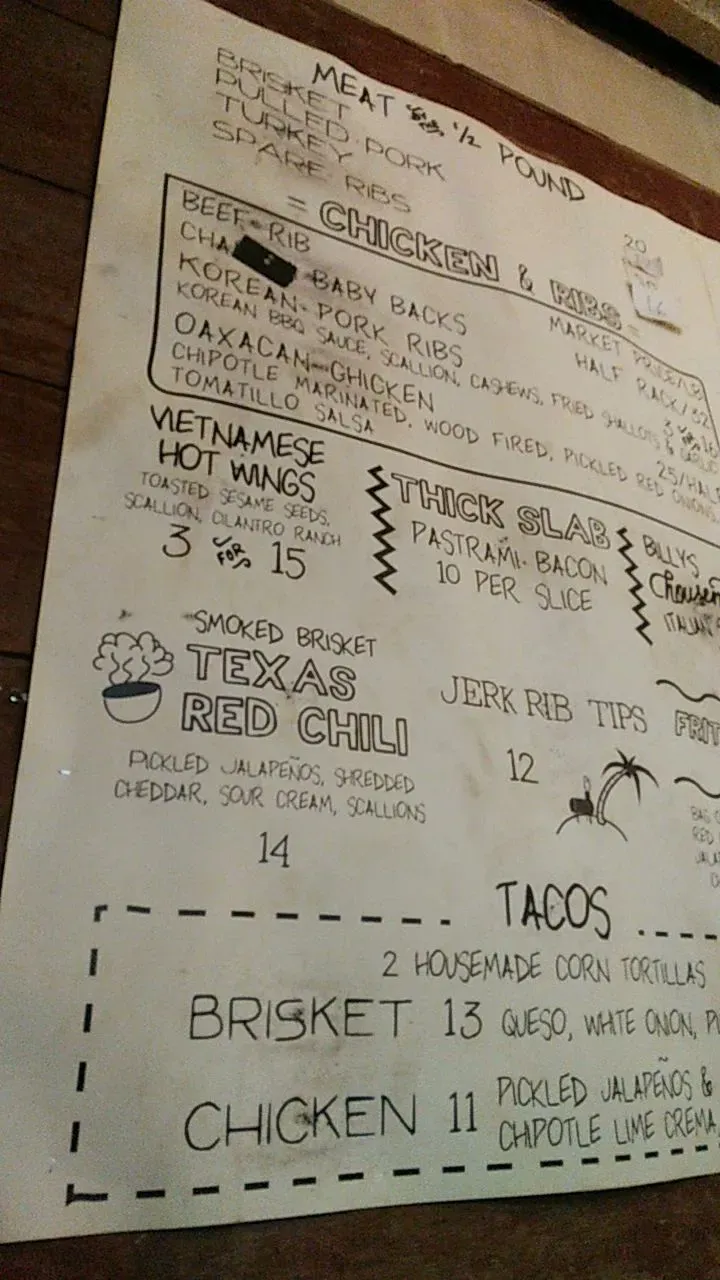 MEAT FOR 1/2 POUND
BRISKET
PULLED PORK
TURKEY
SPARE RIBS
20
16
= CHICKEN & RIBS =
BEEF RIB MARKET PRICE/LB
BABY BACKS HALF RACK/32
KOREAN PORK RIBS 3 FOR 16
KOREAN BBQ SAUCE, SCALLION, CASHEWS, FRIED SHALLOTS &
OAXACAN CHICKEN 25/HALF
CHIPOTLE MARINATED, WOOD FIRED, PICKLED RED ONIONS,
TOMATILLO SALSA
VIETNAMESE
HOT WINGS
TOASTED SESAME SEEDS,
SCALLION, CILANTRO RANCH
3 FOR 15
THICK SLAB
PASTRAMI BACON
10 PER SLICE
BILLYS
ITALIAN
SMOKED BRISKET
TEXAS
RED CHILI
PICKLED JALAPEÑOS, SHREDDED
CHEDDAR, SOUR CREAM, SCALLIONS
14
JERK RIB TIPS
12
FRIT
BAG
RED
JALA
TACOS
2 HOUSEMADE CORN TORTILLAS
BRISKET 13 QUESO, WHITE ONION,
CHICKEN 11 PICKLED JALAPEÑOS &
CHIPOTLE LIME CREMA,